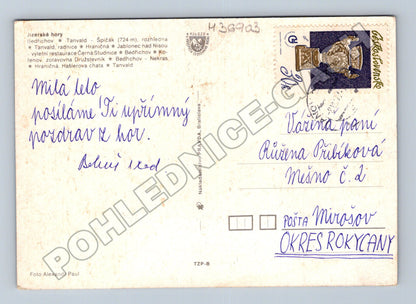 Jizerské hory
Bedřichov ★ Tanvald - Špičák (724 m), rozhledna
★ Tanvald, radnice ★ Hraničná ★ Jablonec nad Nisou
výletní restaurace Černá Studnice ★ Bedřichov - Kristiánov,
zotavovna Družstevník ★ Bedřichov - Nekras,
★ Hraničná, Háblerova chata ★ Tanvald
436703
Československo
Milá teto
posíláme Ti upřímný
pozdrav z hor.
Vážená paní
Růžena Přibíková
Mešno č. 2
POŠTA Mirošov
OKRES ROKYCANY
TZP-B
Foto Alexandr Paul
POHLEDNICE-CZ